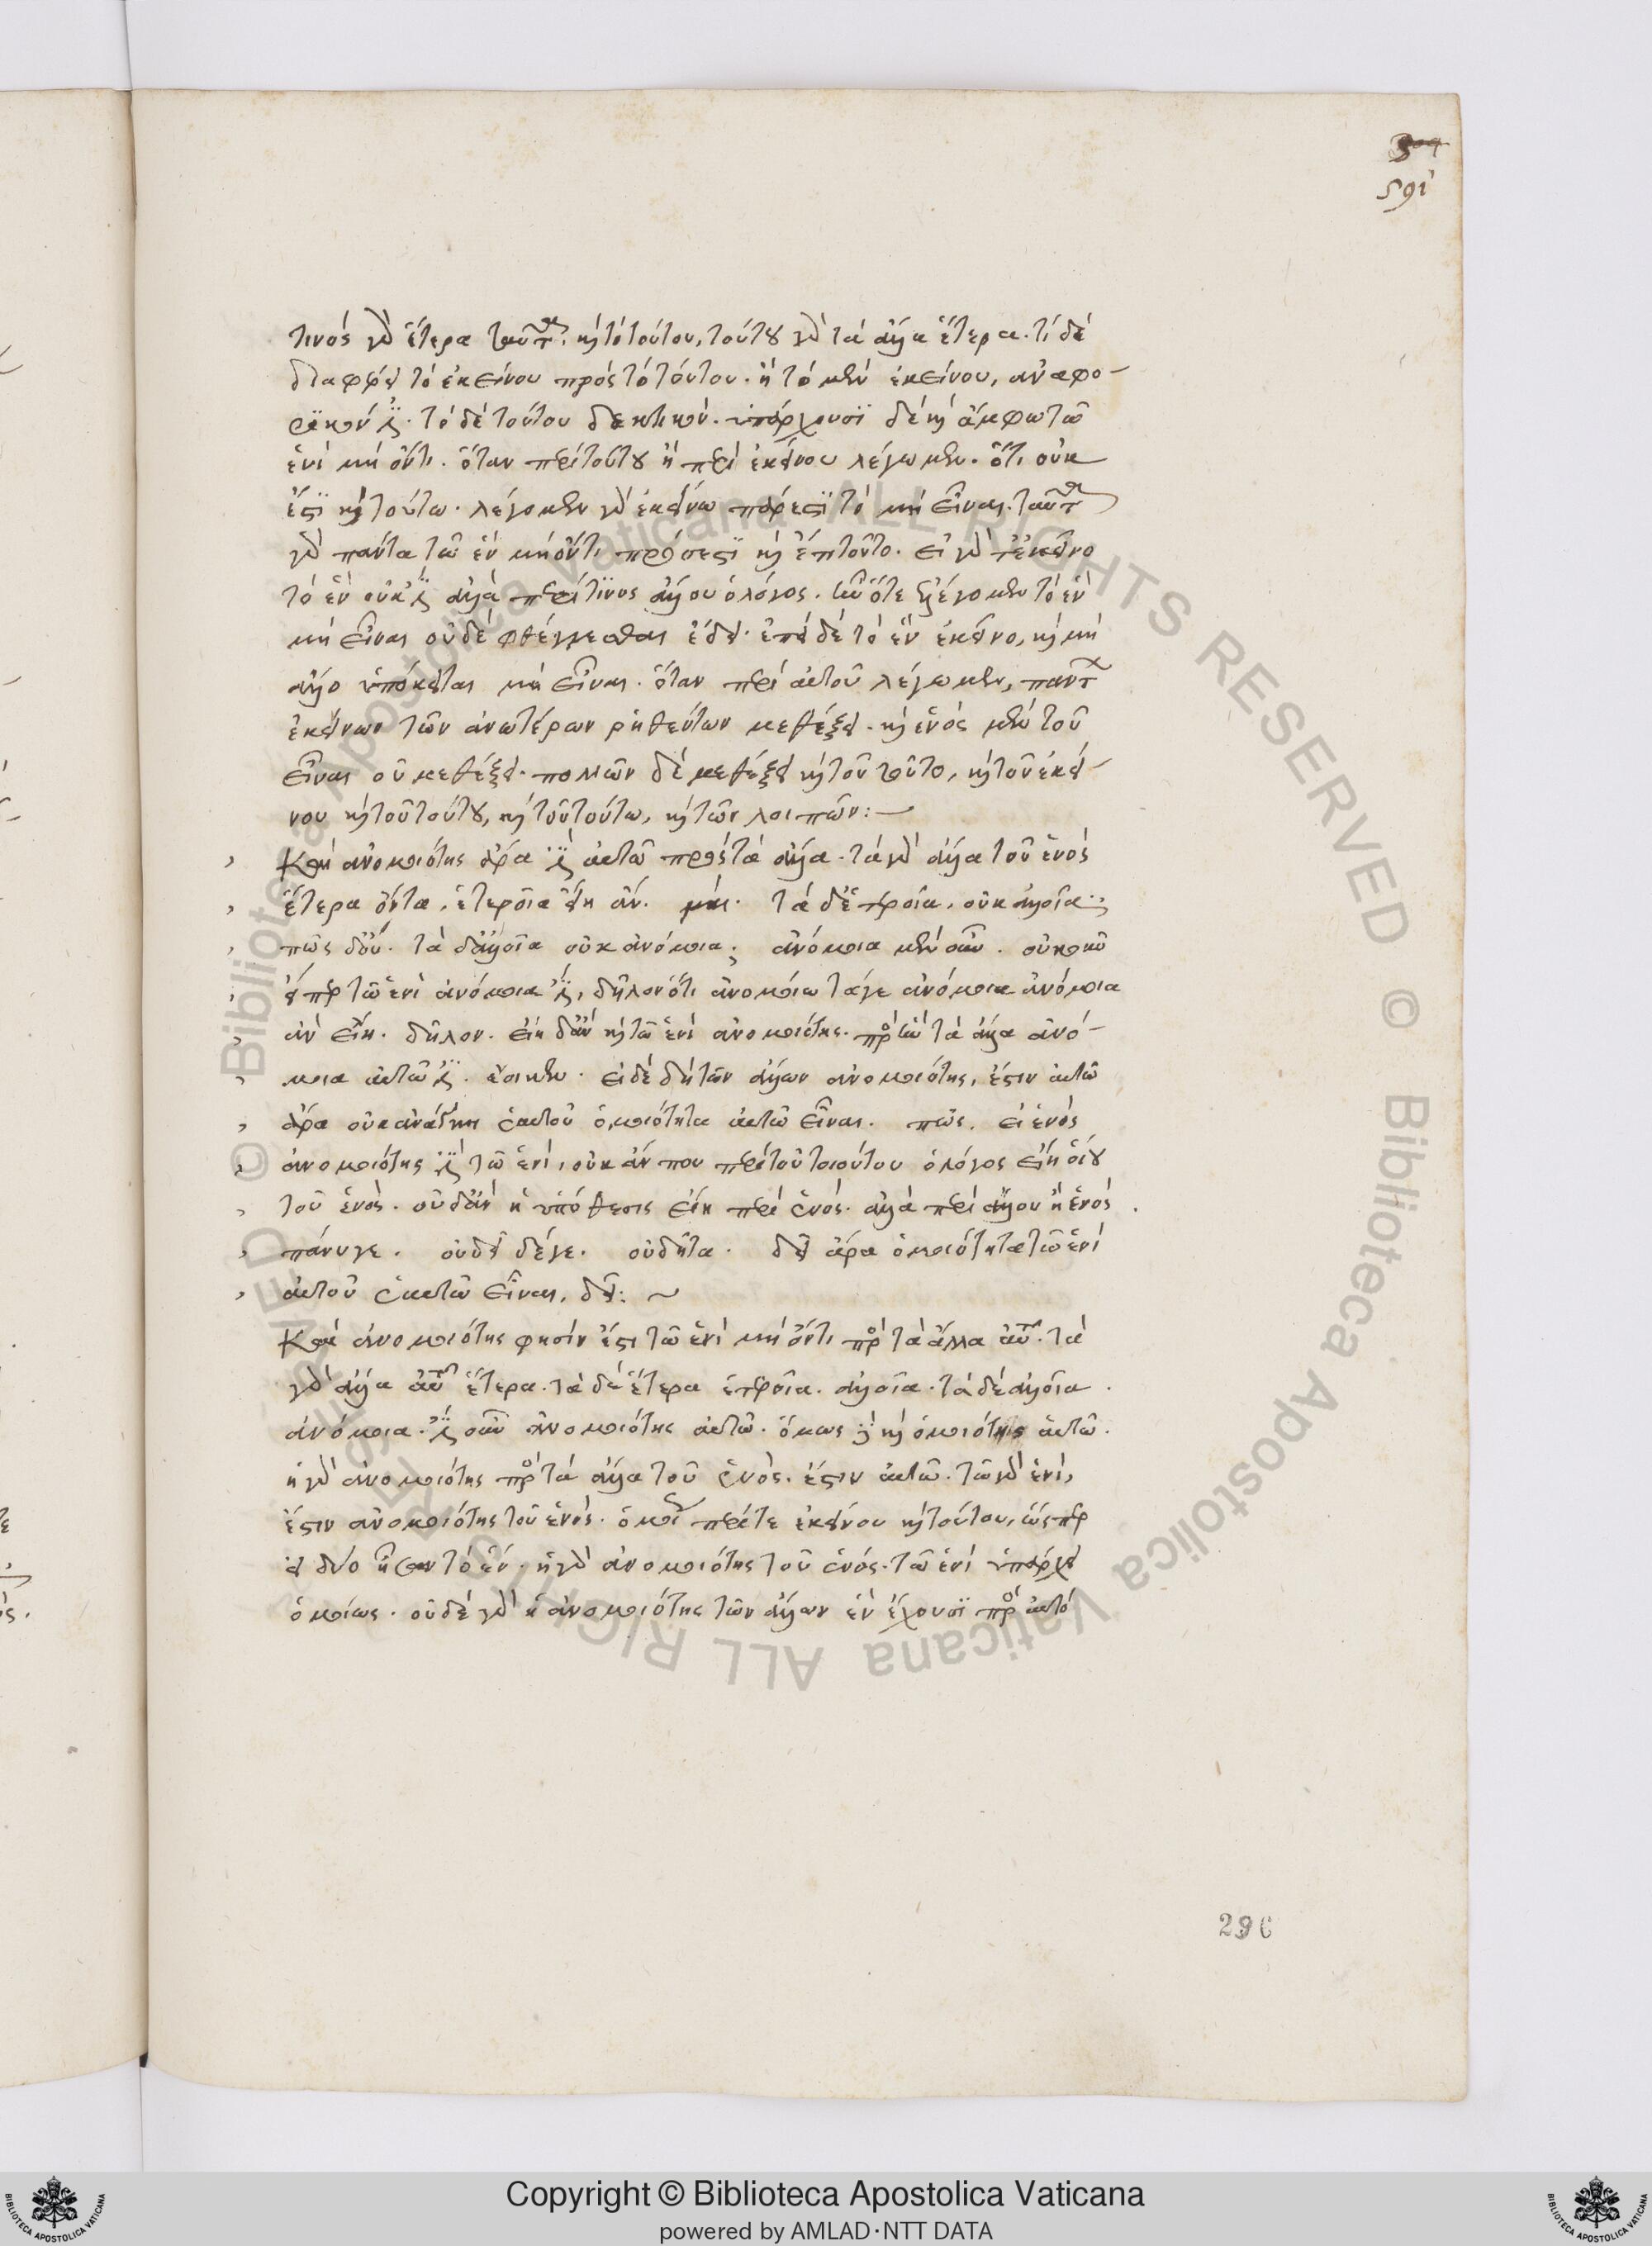 591
τινός γὰρ ἕτερα ταῦτα. καὶ τὸ τούτου, τούτου γὰρ τὰ ἄλλα ἕτερα. τί δὲ
διαφέρει τὸ ἐκείνου πρὸς τὸ τούτου. ἢ τὸ μὲν ἐκείνου, ἀναφο-
ρικόν ἐστι. τὸ δὲ τούτου δεικτικόν. ὑπάρχουσι δὲ καὶ ἄμφω τῶ
ἑνὶ μὴ ὄντι. ὅταν περὶ τούτου ἢ περὶ ἐκείνου λέγωμεν. ὅτι οὐκ
ἔστι καὶ τούτω. λέγομεν γὰρ ἐκείνω πάρεστι τὸ μὴ εἶναι. ταῦτα
γὰρ πάντα τῶ ἓν μὴ ὄντι πρόσεστι καὶ ἔτι τοῦτο. εἰ γὰρ ἐκεῖνο
τὸ ἓν οὐκ ἔστι ἀλλὰ περί τινος ἄλλου ὁ λόγος. ὅτε λέγομεν τὸ ἓν
μὴ εἶναι οὐδὲ φθέγγεσθαι ἔδει. ἐπεὶ δὲ τὸ ἓν ἐκεῖνο, καὶ μὴ
ἄλλο ὑπόκειται μὴ εἶναι. ὅταν περὶ αὐτοῦ λέγωμεν, πάντων
ἐκείνων τῶν ἀνωτέρων ῥηθέντων μεθέξει. καὶ ἑνὸς μὲν τοῦ
εἶναι οὐ μεθέξει. πολλῶν δὲ μεθέξει καὶ τοῦ τοῦτο, καὶ τοῦ ἐκεί-
νου καὶ τοῦ τούτου, καὶ τοῦ τούτω, καὶ τῶν λοιπῶν:—
Καὶ ἀνομοιότης ἄρα ἐστὶ αὐτῶ πρὸς τὰ ἄλλα. τὰ γὰρ ἄλλα τοῦ ἑνὸς
ἕτερα ὄντα, ἑτεροῖα εἴη ἄν. ναί. τὰ δ' ἑτεροῖα, οὐκ ἀλλοῖα;
πῶς δ' οὔ. τὰ δ' ἀλλοῖα οὐκ ἀνόμοια; ἀνόμοια μὲν οὖν. οὐκοῦν
εἴπερ τῶ ἑνὶ ἀνόμοιά ἐστι, δῆλον ὅτι ἀνομοίω τάγε ἀνόμοια ἀνόμοια
ἂν εἴη. δῆλον. εἴη δ' ἂν καὶ τῶ ἑνὶ ἀνομοιότης. πρὸς ἣν τὰ ἄλλα ἀνό-
μοια αὐτῶ ἐστι. ἔοικεν. εἰ δὲ δὴ τῶν ἄλλων ἀνομοιότης, ἔστιν αὐτῶ
ἄρα οὐκ ἀνάγκη ἑαυτοῦ ὁμοιότητα αὐτῶ εἶναι. πῶς. εἰ ἑνὸς
ἀνομοιότης ἐστὶ τῶ ἑνί, οὐκ ἄν που περὶ τοῦ τοιούτου ὁ λόγος εἴη οἵου
τοῦ ἑνός. οὐδ' ἂν ἡ ὑπόθεσις εἴη περὶ ἑνός. ἀλλὰ περὶ ἄλλου ἢ ἑνός.
πάνυγε. οὐ δεῖ δέγε. οὐδῆτα. δεῖ ἄρα ὁμοιότητα τῶ ἑνὶ
αὐτοῦ ἑαυτῶ εἶναι, δεῖ: ~
Καὶ ἀνομοιότης φησὶν ἔστι τῶ ἑνὶ μὴ ὄντι πρὸς τὰ ἄλλα αὐτοῦ. τὰ
γὰρ ἄλλα αὐτοῦ ἕτερα. τὰ δὲ ἕτερα ἑτεροῖα. ἀλλοῖα. τὰ δὲ ἀλλοῖα.
ἀνόμοια. ἔστι οὖν ἀνομοιότης αὐτῶ. ὅμως ἐστὶ καὶ ὁμοιότης αὐτῶ.
ἡ γὰρ ἀνομοιότης πρὸς τὰ ἄλλα τοῦ ἑνός. ἔστιν αὐτῶ. τῶ γὰρ ἑνὶ,
ἔστιν ἀνομοιότης τοῦ ἑνός. ὁμοίως περί τε ἐκείνου καὶ τούτου, ὥσπερ
εἰ δύο ἦσαν τὸ ἕν. ἡ γὰρ ἀνομοιότης τοῦ ἑνός. τῶ ἑνὶ ὑπάρχει
ὁμοίως. οὐδὲ γὰρ ἡ ἀνομοιότης τῶν ἄλλων ἓν ἔχουσι πρὸς αὐτό
296